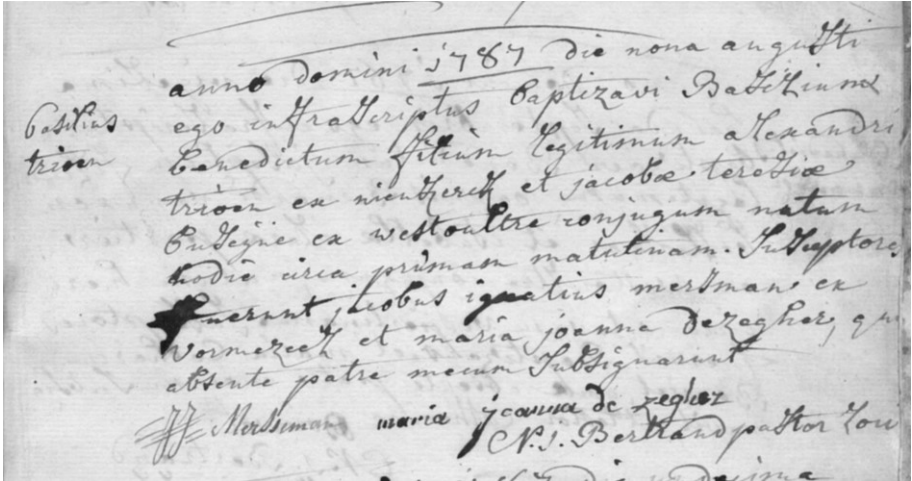 anno domini 1787 die nona augusti
basilius
trioen
ego infrascriptus baptizavi Basilium
benedictum filium legitimum alexandri
trioen ex nieukerck et jacobæ teresiæ
buseijne ex westoultre conjugum natum
hodie circa primam matutinam. Susceptores
fuerunt jacobus ignatius mersman ex
vormezeel et maria joanna dezegher, qui
absente patre mecum subsignarunt
JJ Mersseman maria joanna de zegher
N. J. Bertrand pastor